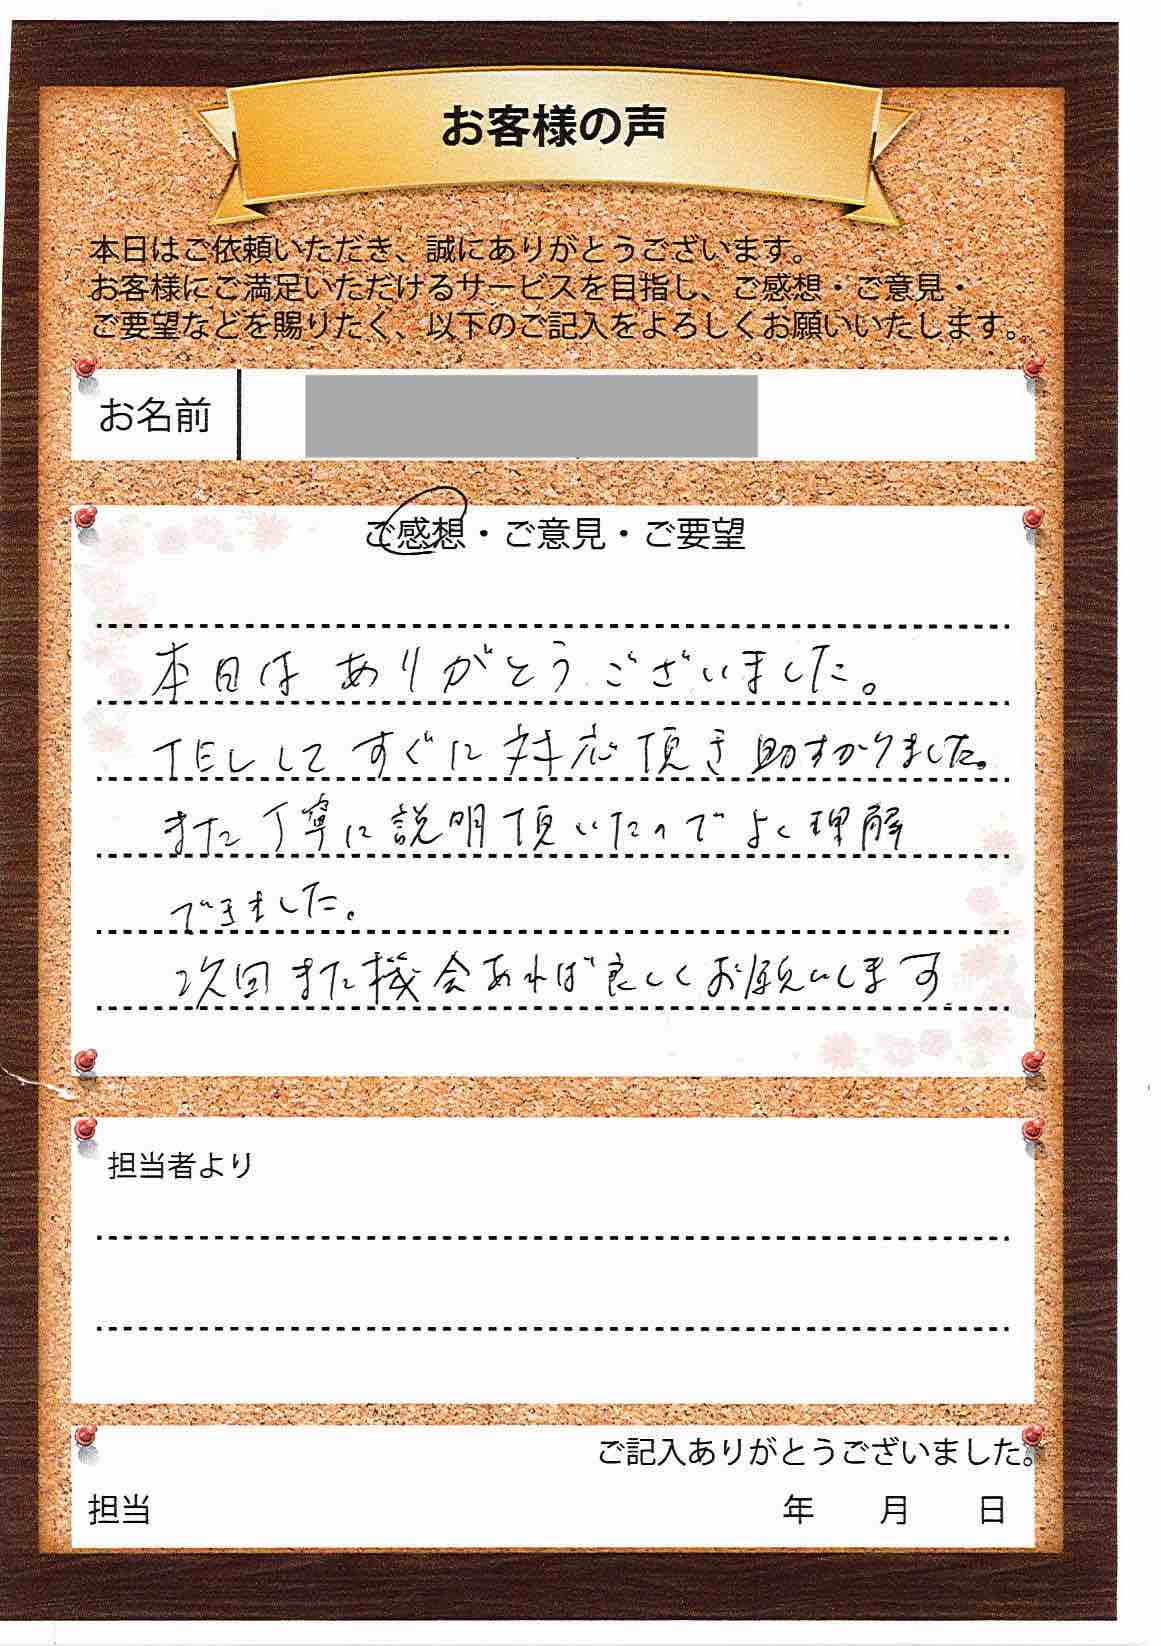 お客様の声
本日はご依頼いただき、誠にありがとうございます。
お客様にご満足いただけるサービスを目指し、ご感想・ご意見・
ご要望などを賜りたく、以下のご記入をよろしくお願いいたします。
お名前
ご感想・ご意見・ご要望
本日は ありがとうございました。
TELして すぐに 対応 頂き 助すかりました。
また 丁寧に 説明 頂いたので よく 理解
できました。
次回また機会あれば良しくお願いします
担当者より
ご記入ありがとうございました。
担当 年 月 日